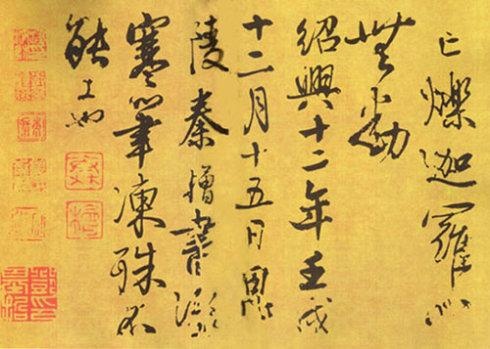 亡爍迦羅心
無動
紹興十二年壬戌
十二月十五日
陵秦檜書深
寒筆凍殊不
能工也